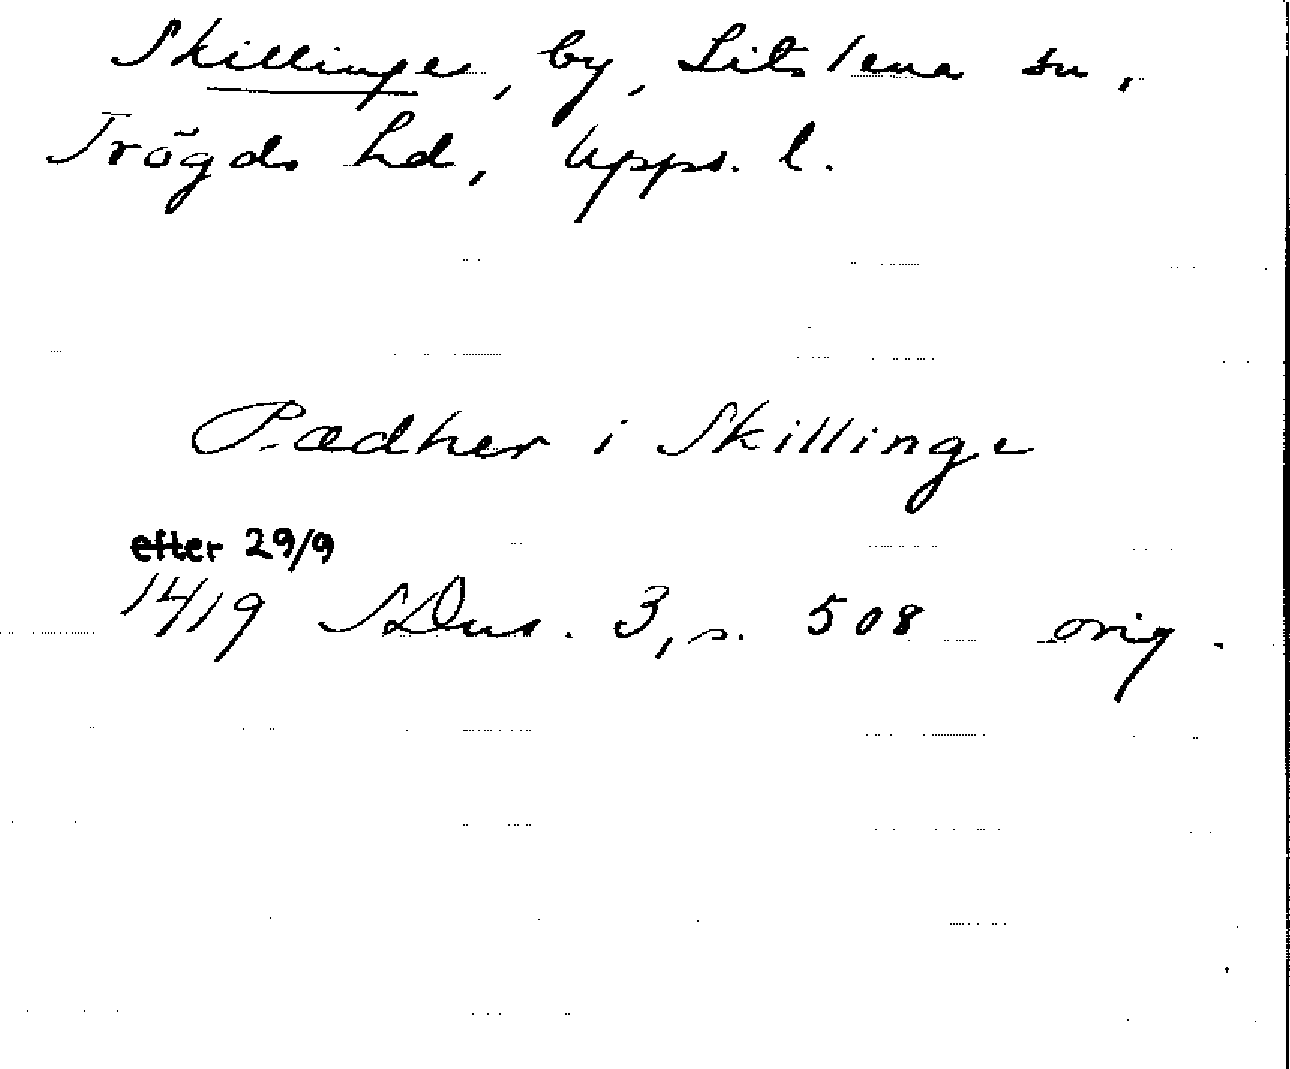 Skillinge, by, Litslena sn,
Trögds hd, Upps. l.
Pædher i Skillinge
efter 29/9
1419 SDns. 3, s. 508 orig.